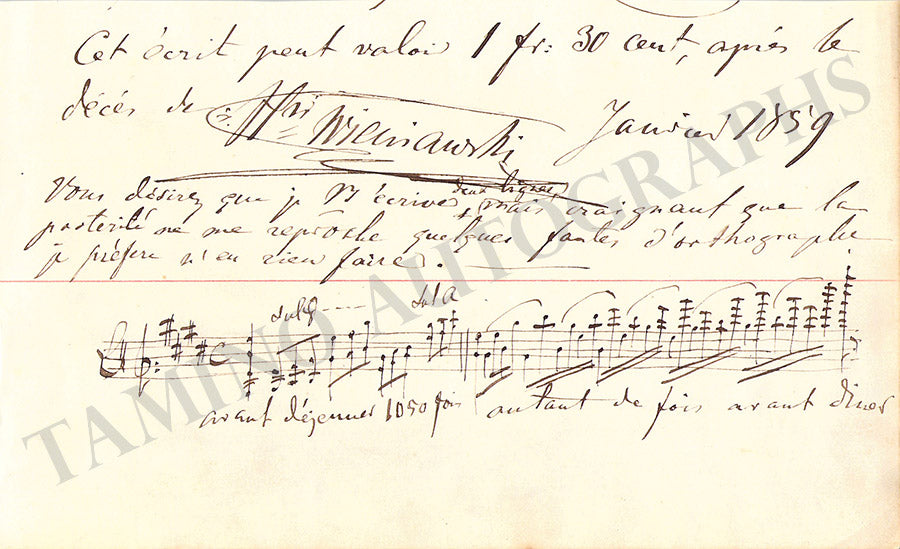 Cet écrit peut valoir 1 fr: 30 cent, après le
décès de Hri Wieniawski Janvier 1859
Vous désirez que je v écrive deux lignes, mais craignant que la
postérité ne me reproche quelques fautes d'orthographe
je préfère n'en rien faire.
Sul G Sul A
avant déjeuner 1050 fois autant de fois avant diner
TAMINO AUTOGRAPHS